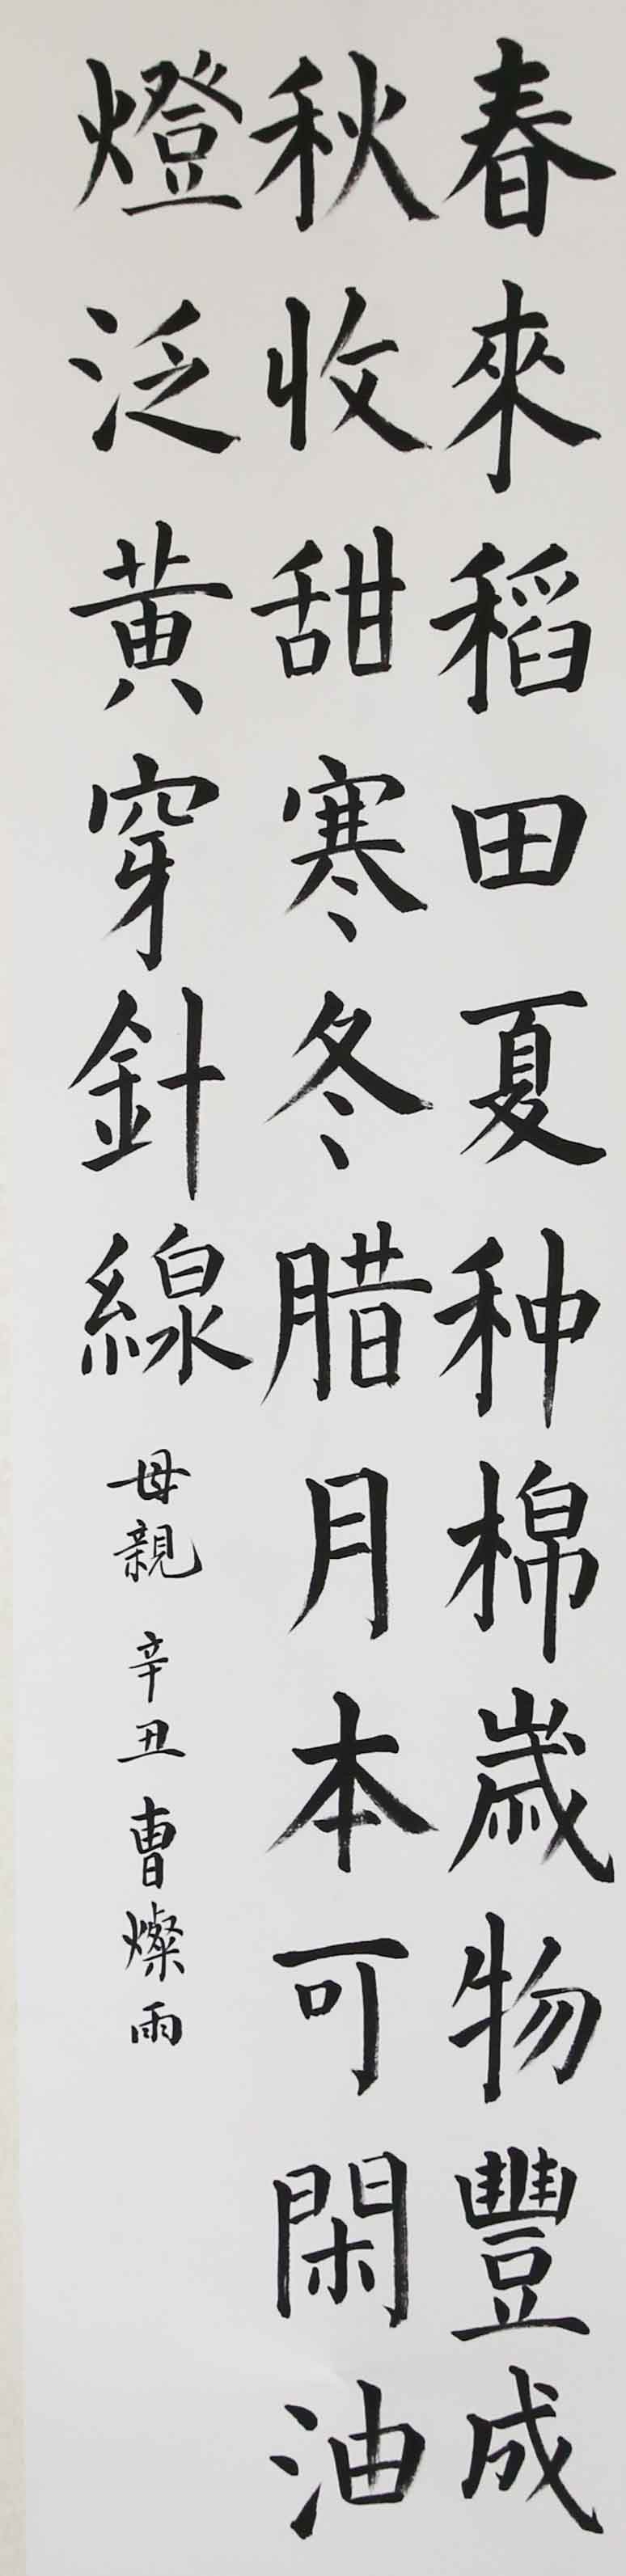 春來稻田夏种棉歲物豐成
秋收甜寒冬腊月本可閑油
燈泛黄穿針線
母親 辛丑 曹燦雨